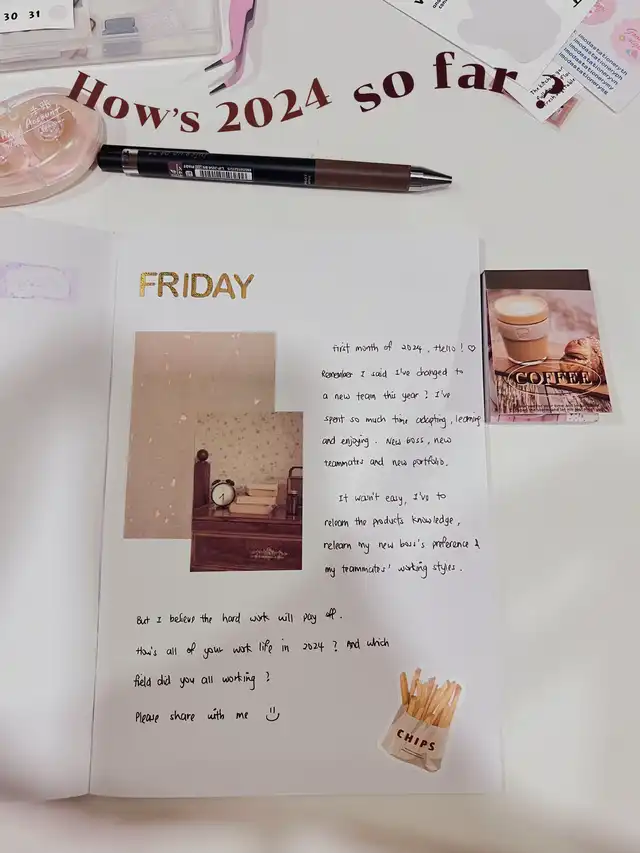 30 31
How's 2024 so far
Account
FRIDAY
First month of 2024, Hello! ♡
Remember I said I've changed to
a new team this year? I've
spent so much time adapting, learning
and enjoying. New boss, new
teammates and new portfolio.
It wasn't easy, I've to
relearn the products knowledge,
relearn my new boss's preference &
my teammates' working styles.
But I believe the hard work will pay off.
How's all of your work life in 2024? And which
field did you all working?
Please share with me
COFFEE
CHIPS